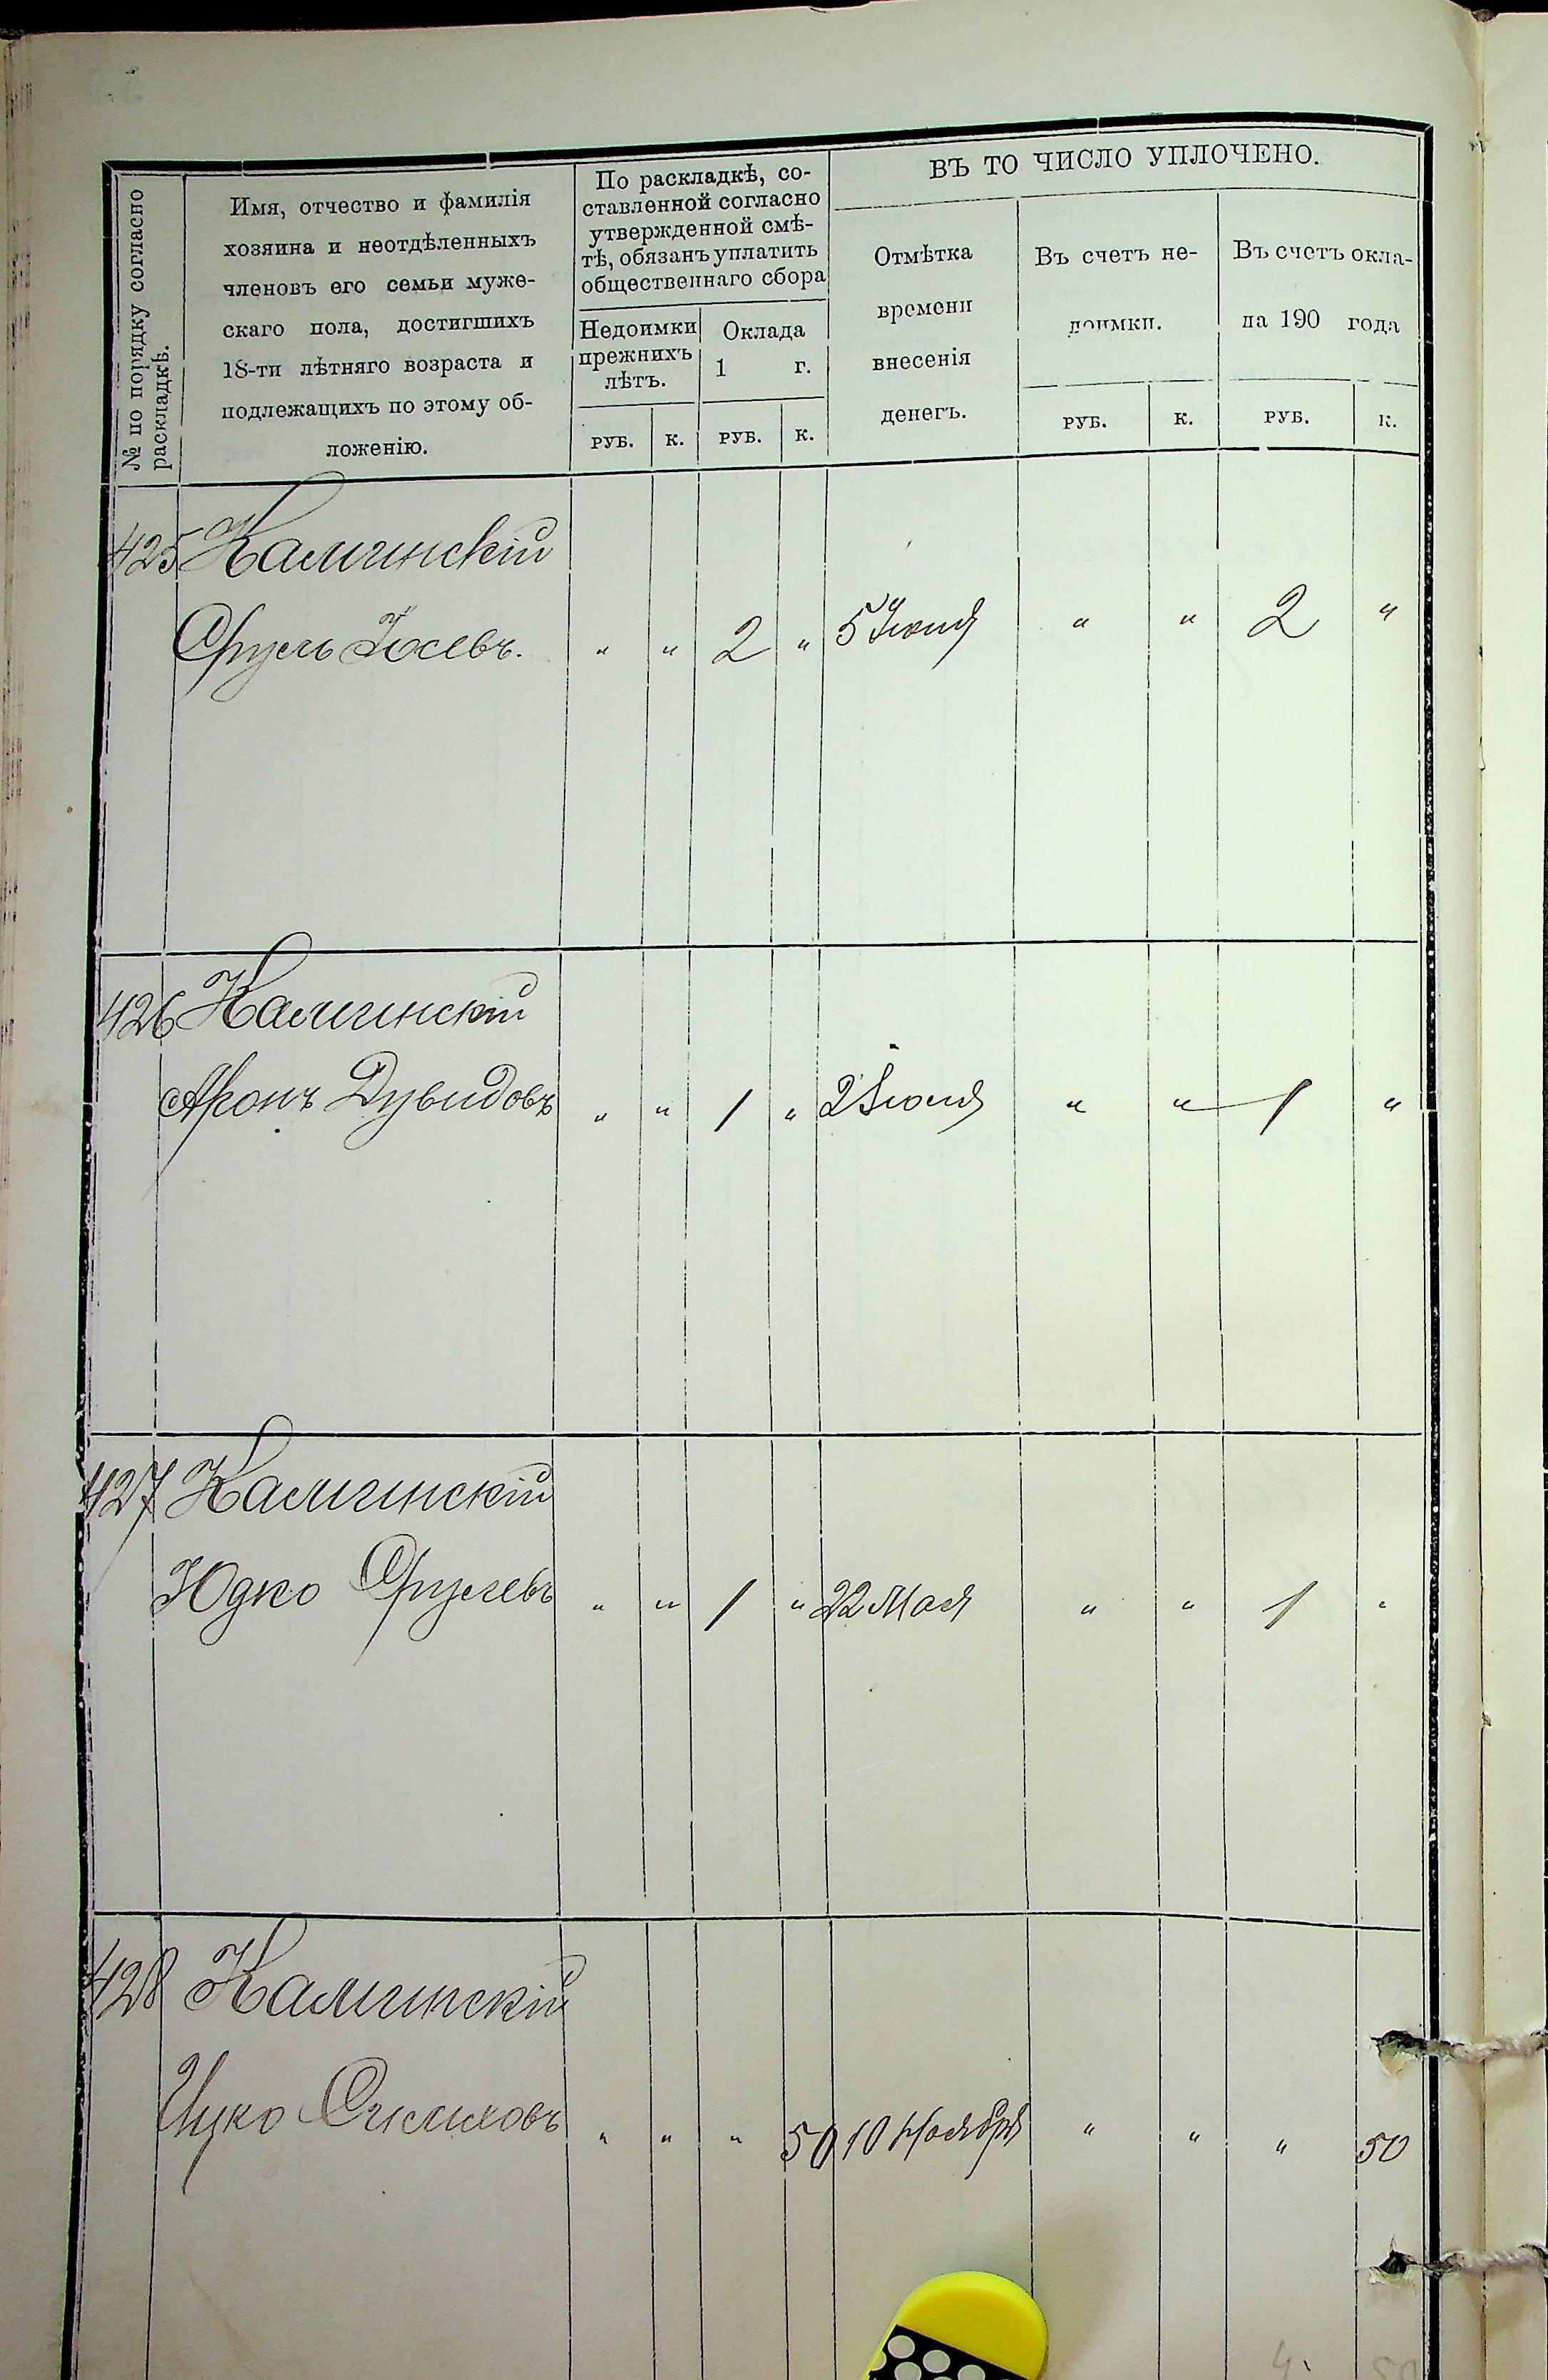 № по порядку согласно
раскладкѣ.
Имя, отчество и фамилія
хозяина и неотдѣленныхъ
членовъ его семьи муже-
скаго пола, достигшихъ
18-ти лѣтняго возраста и
подлежащихъ по этому об-
ложенію.
По раскладкѣ, со-
ставленной согласно
утвержденной смѣ-
тѣ, обязанъ уплатить
общественнаго сбора
Недоимки
прежнихъ
лѣтъ.
Оклада
1 г.
РУБ. К. РУБ. К.
ВЪ ТО ЧИСЛО УПЛОЧЕНО.
Отмѣтка
времени
внесенія
денегъ.
Въ счетъ не-
доимки.
РУБ. К.
Въ счетъ окла-
да 190 года
РУБ. К.
425 Калминскій
Сруль Іосевъ. " " 2 " 5 Іюня " " 2 "
426 Калминскій
Аронъ Дувидовъ " " 1 " 2 Іюня " " 1 "
427 Калминскій
Юдко Срулевъ " " 1 " 22 Мая " " 1 "
428 Калминскій
Ицко " " " 50 10 Ноября " " " 50